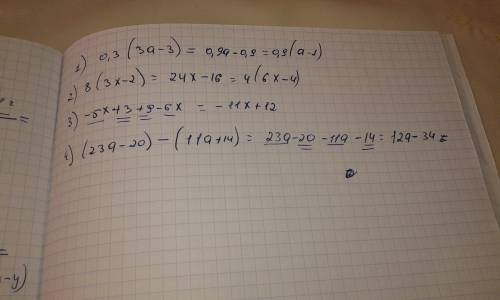 1) 0,3 (3a-3) = 0,9a-0,9 = 0,9(a-1)
2) 8 (3x-2) = 24x-16 = 4(6x-4)
3) -5x+3+9-6x = -11x+12
4) (23a-20) - (11a+14) = 23a-20-11a-14 = 12a-34
-y)